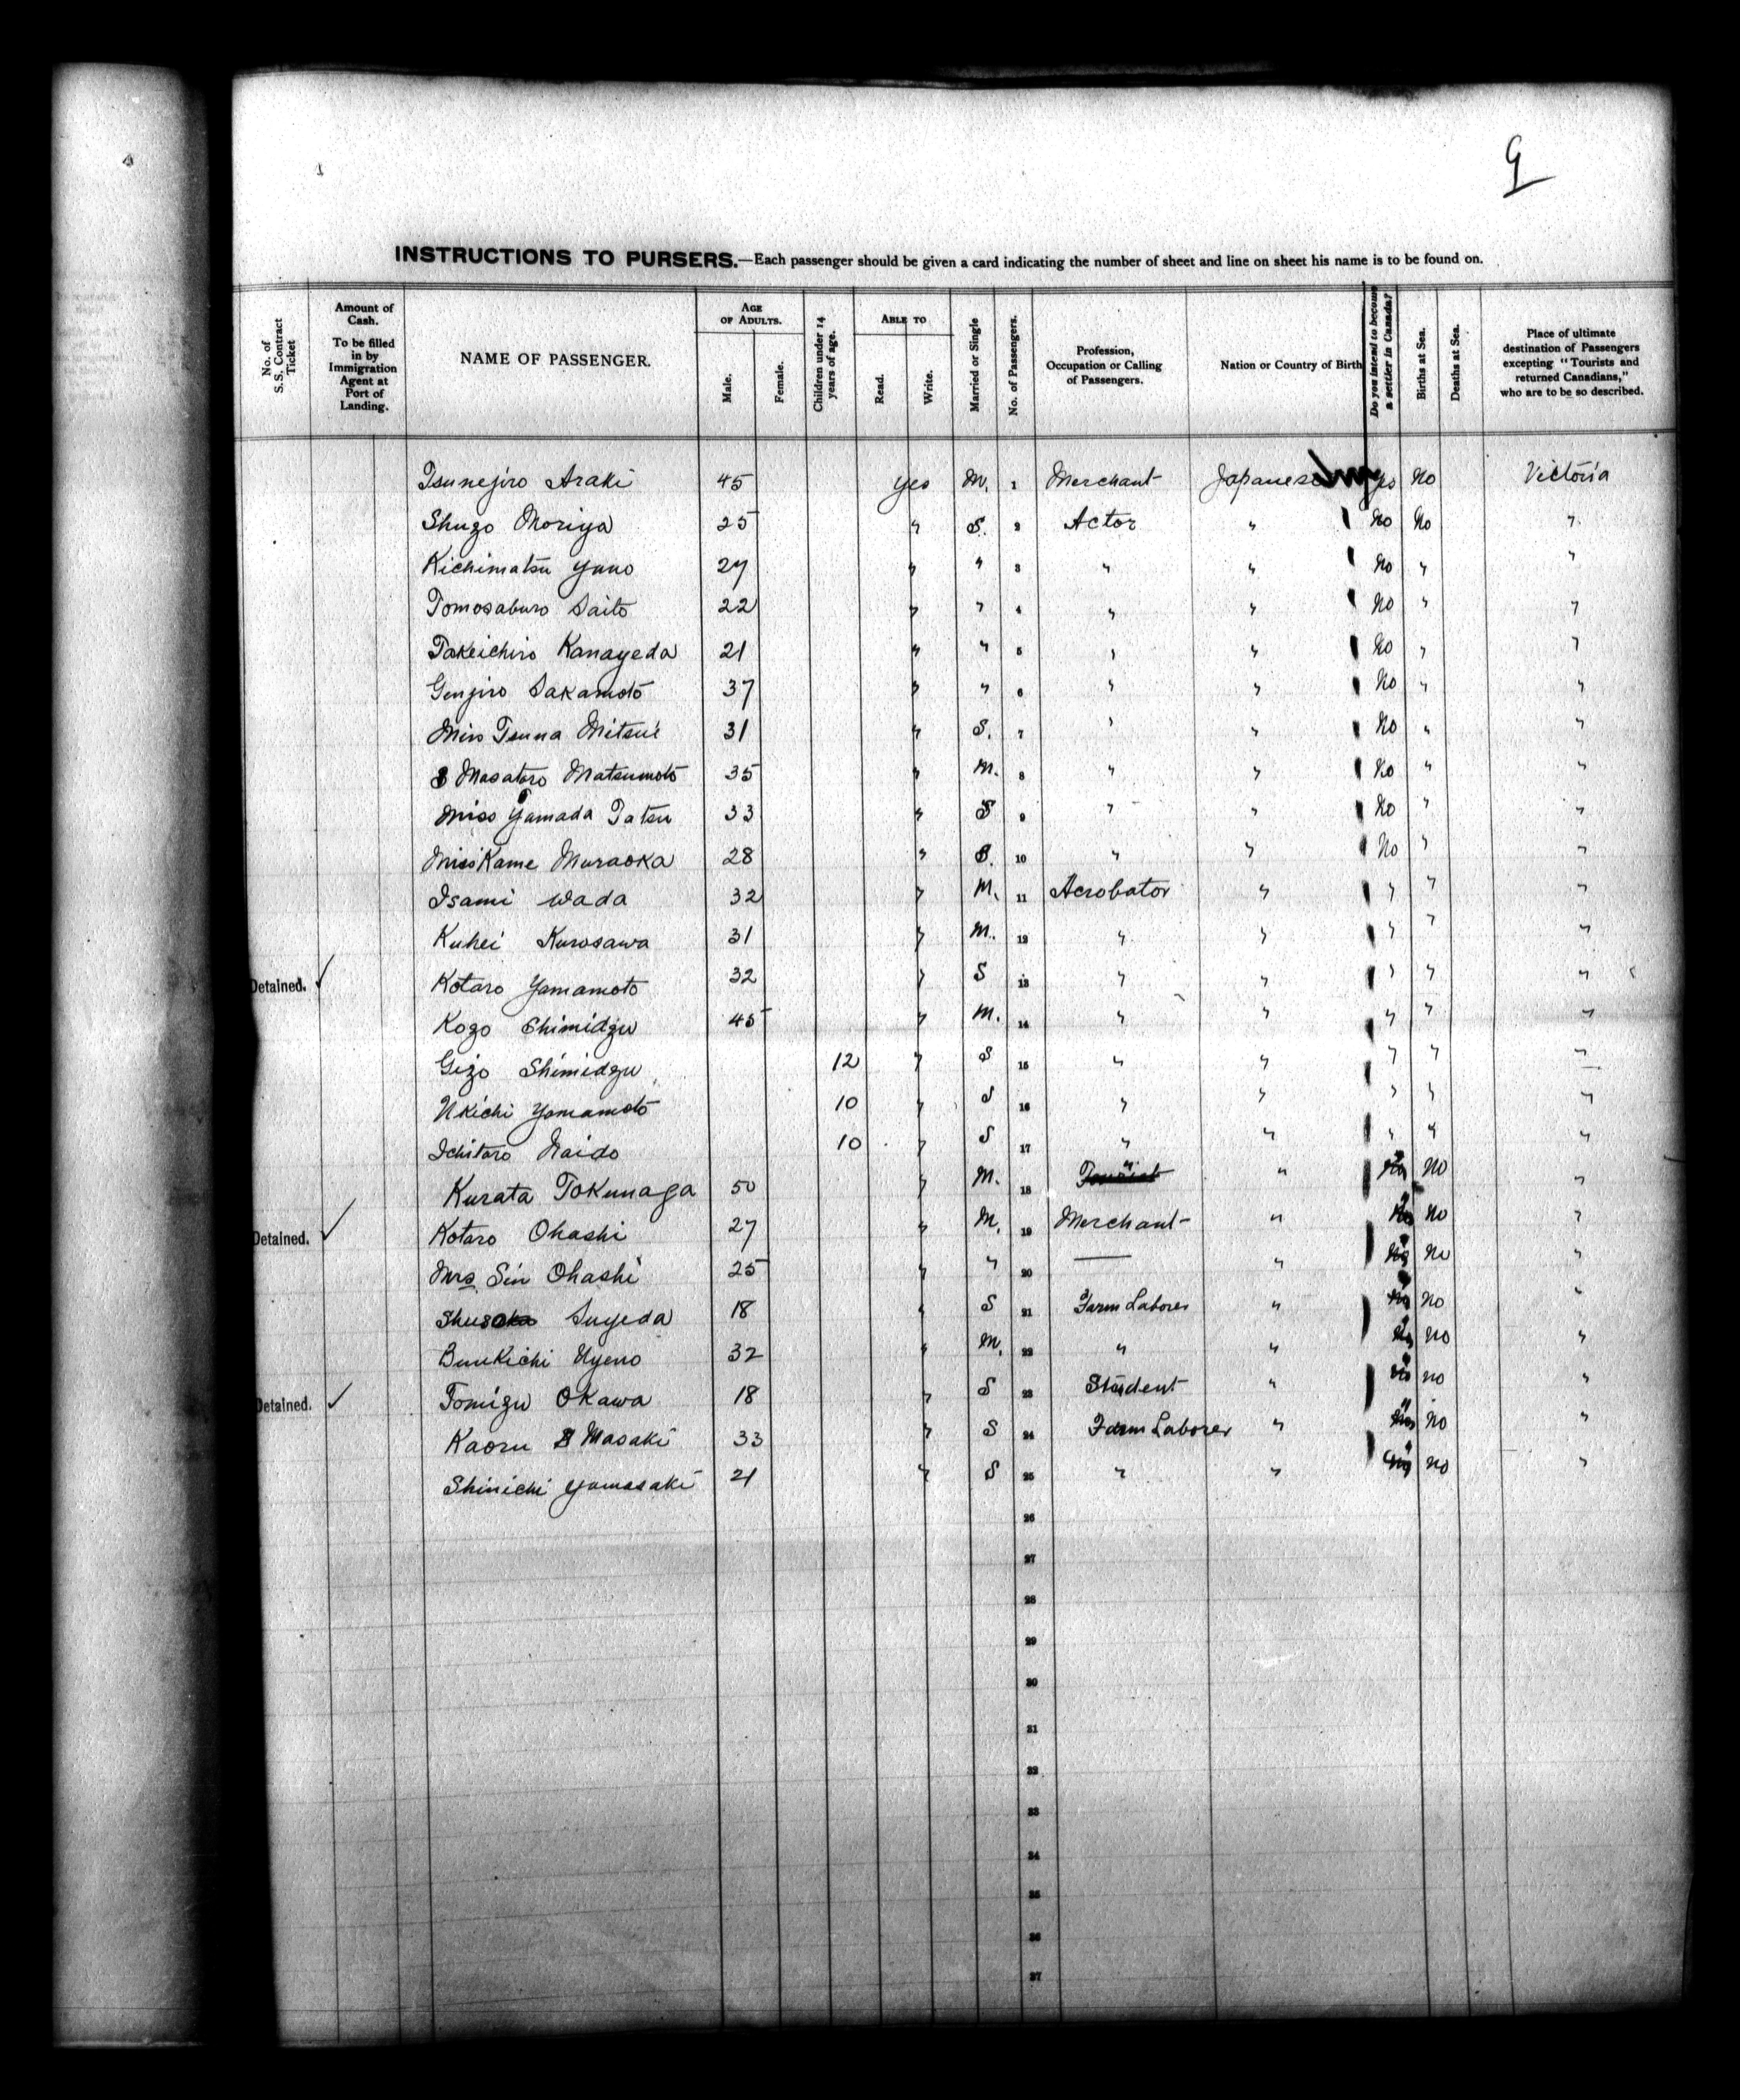 9
INSTRUCTIONS TO PURSERS.—Each passenger should be given a card indicating the number of sheet and line on sheet his name is to be found on.
No. of S.S. Contract Ticket
Amount of Cash. To be filled in by Immigration Agent at Port of Landing.
NAME OF PASSENGER.
AGE OF ADULTS.
Male.
Female.
Children under 14 years of age.
ABLE TO
Read.
Write.
Married or Single
No. of Passengers.
Profession, Occupation or Calling of Passengers.
Nation or Country of Birth
Do you intend to become a settler in Canada?
Births at Sea.
Deaths at Sea.
Place of ultimate destination of Passengers excepting "Tourists and returned Canadians," who are to be so described.
Tsunejiro Araki 45 yes M. 1 Merchant Japanese yes No Victoria
Shugo Moriya 25 " S. 2 Actor " No No "
Kichimatsu Yano 27 " " 3 " " No " "
Tomosaburo Saito 22 " " 4 " " No " "
Takeichiro Kanayeda 21 " " 5 " " No " "
Genjiro Sakamoto 37 " " 6 " " No " "
Miss Tsuna Mitsui 31 " S. 7 " " No " "
Masataro Matsumoto 35 " M. 8 " " No " "
Miss Yamada Tatsu 33 " S 9 " " No " "
Miss Kame Muraoka 28 " S. 10 " " No " "
Isami Wada 32 " M. 11 Acrobator " " " "
Kuhei Kurosawa 31 " M. 12 " " " " "
Detained. Kotaro Yamamoto 32 " S 13 " " " " "
Kogo Shimidzu 45 " M. 14 " " " " "
Gizo Shimidzu 12 " S 15 " " " " "
Ukichi Yamamoto 10 " S 16 " " " " "
Ichitaro Naido 10 " S 17 " " " " "
Kurata Tokunaga 50 " M. 18 Tourist " " No "
Detained. Kotaro Ohashi 27 " M. 19 Merchant " " No "
Mrs Sin Ohashi 25 " " 20 — " " No "
Suyeda 18 " S 21 Farm Laborer " " No "
Bunkichi Uyeno 32 " M. 22 " " " No "
Detained. Tomigu Okawa 18 " S 23 Student " " no "
Kaoru Masaki 33 " S 24 Farm Laborer " " No "
Shinichi Yamasaki 21 " S 25 " " " no "
26
27
28
29
30
31
32
33
34
35
36
37